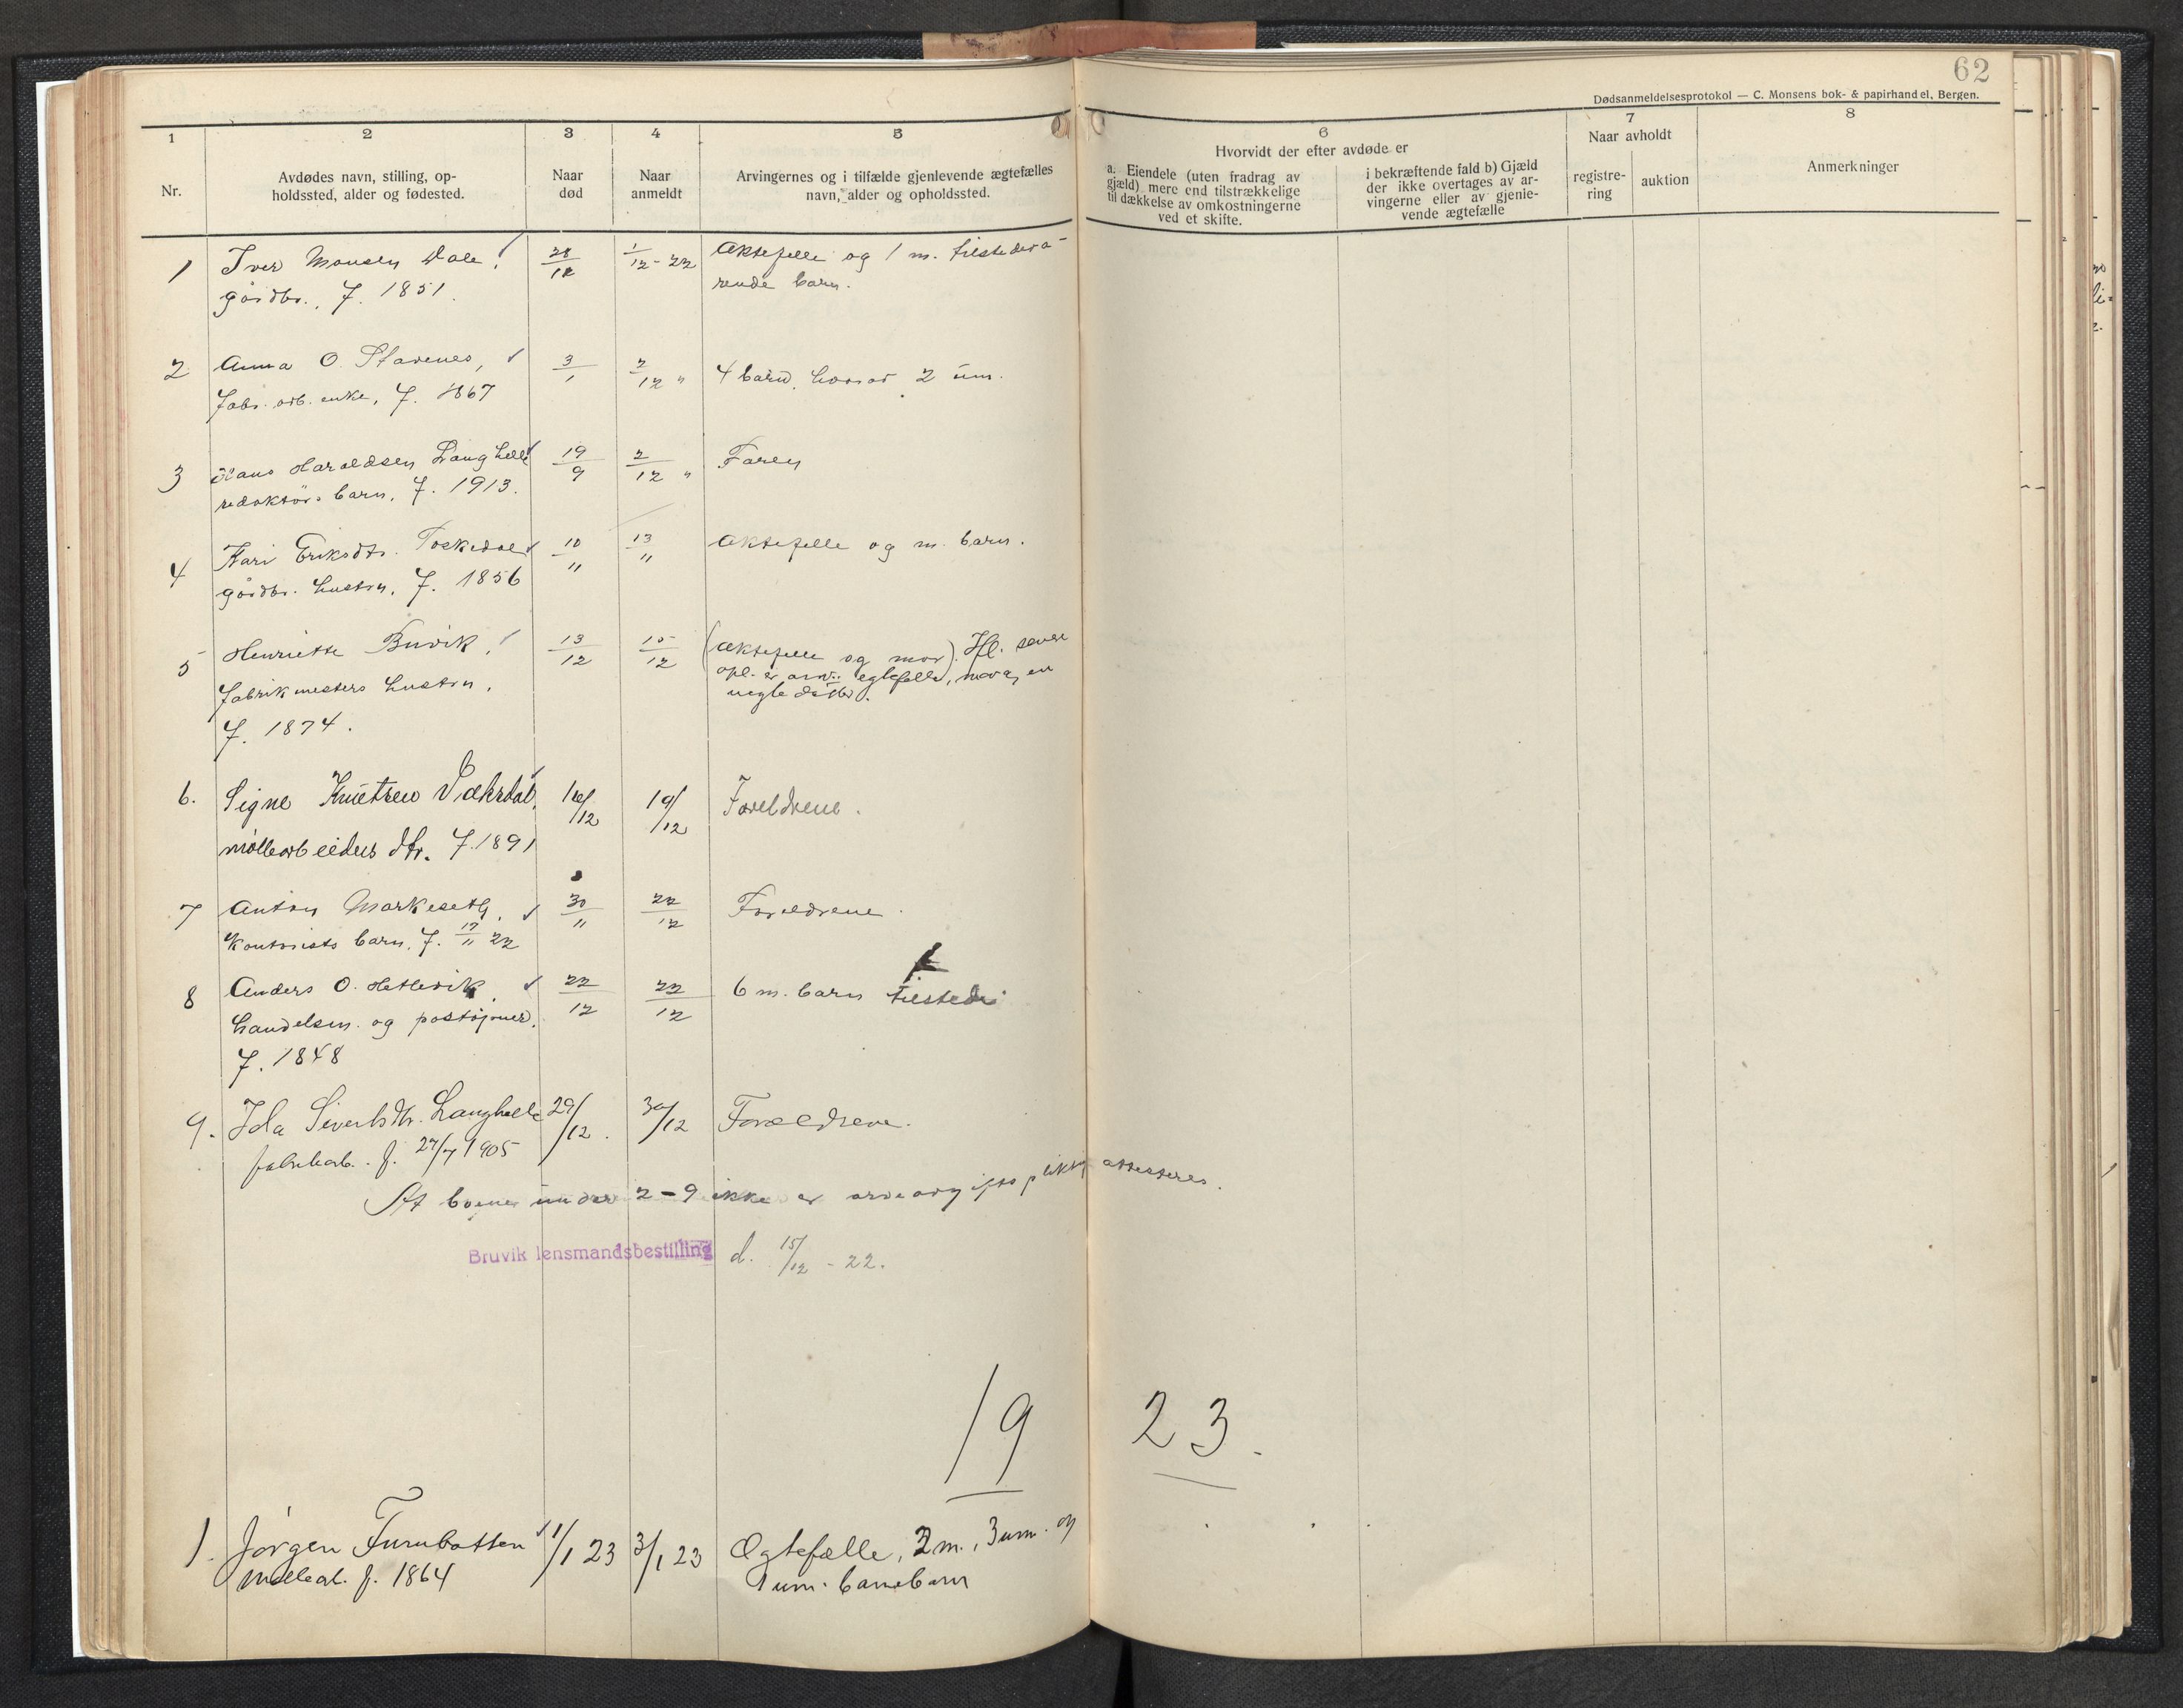 62
Dødsanmeldelsesprotokol — C. Monsens bok- & papirhandel, Bergen.
1 2 3 4 5 6 7 8
Nr.
Avdødes navn, stilling, op-
holdssted, alder og fødested.
Naar
død
Naar
anmeldt
Arvingernes og i tilfælde gjenlevende ægtefælles
navn, alder og opholdssted.
Hvorvidt der efter avdøde er
a. Eiendele (uten fradrag av
gjæld) mere end tilstrækkelige
til dækkelse av omkostningerne
ved et skifte.
i bekræftende fald b) Gjæld
der ikke overtages av ar-
vingerne eller av gjenle-
vende ægtefælle
Naar avholdt
registre-
ring
auktion
Anmerkninger
1 Iver Monsen Dale, 28/12 1/12-22 Æktefelle og 1 m. tilstedevæ-
gårdbr., f. 1851. rende barn.
2 Anna O. Stavenes, 3/1 2/12 " 4 barn, hvorav 2 um.
fabr. arb. enke, f. 1867
3 Hans Haraldsen Langhelle 19/9 2/12 " Faren
redaktørs barn, f. 1913.
4 Kari Eriksdtr. Toskedal 10/11 13/11 Æktefelle og m. barn.
gårdbr. hustru, f. 1856
5 Henriette Buvik, 13/12 15/12 (Æktefelle og mor). Ifl. senere
opl. er arv.: egtefelle, mor og en
uegte datter.
fabrikmesters hustru,
f. 1874.
6. Signe Knutsen Vaksdal, 16/12 19/12 Foreldrene.
møllearbeiders dtr. f. 1891
7 Anton Markeseth, 30/11 22/12 Foreldrene.
kontorists barn, f. 17/11 22
8 Anders O. Hetlevik, 22/12 22/12 6 m. barn tilstede
handelsm. og postopner,
f. 1848
9. Ida Sivertsdtr. Langhelle 29/12. 30/12 Forældrene.
fabrikarb. f. 27/7 1905
At boene under 2-9 ikke er arveavgiftspliktig attesteres.
Bruvik lensmandsbestilling d. 15/12 - 22.
19 23.
1. Jørgen Furnbotten 1/1 23 3/1 23 Ægtefælle, 2 m., 3 um. og
møllearb. f. 1864 1 um. barnebarn